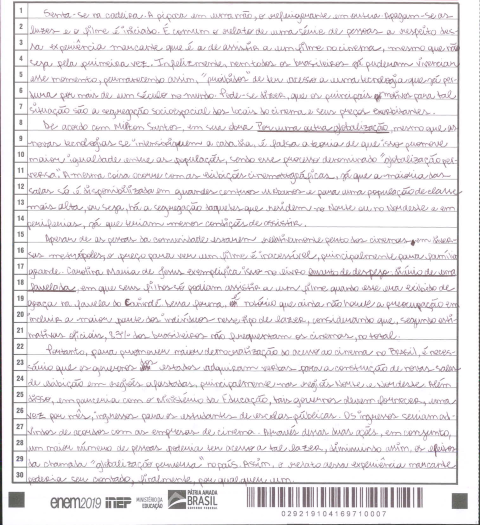 1 Senta-se na cadeira. A pipoca em uma mão, o refrigerante em outra. Apagam-se as
2 luzes e o filme é iniciado. É comum o relato de uma série de pessoas a respeito des-
3 sa experiência marcante que é a de assistir a um filme no cinema, mesmo que não
4 seja pela primeira vez. Infelizmente, nem todos os brasileiros já puderam vivenciar
5 esse momento, permanecendo assim, "proibidos" de ter acesso a uma tecnologia que já per-
6 dura por mais de um século no mundo. Pode-se dizer que os principais motivos para tal
7 situação são a segregação socioespacial dos locais do cinema e seus preços exorbitantes.
8 De acordo com Milton Santos, em sua obra Por uma outra globalização, mesmo que as
9 novas tecnologias se a é falsa a teoria de que isso promove
10 maior igualdade entre as populações, sendo esse processo denominado "globalização per-
11 versa". A mesma coisa ocorre com as exibições cinematográficas, já que a maioria das
12 salas só é disponibilizada em grandes centros urbanos e para uma população de classe
13 mais alta, ou seja, há a segregação daqueles que residem no Norte ou no Nordeste e em
14 periferias, já que teriam menos condições de assistir.
15 Apesar de as pessoas da comunidade estarem perto dos cinemas em diver-
16 sas metrópoles, o preço para ver um filme é inacessível, principalmente para família
17 grande. Carolina Maria de Jesus exemplifica isso no livro Quarto de despejo: diário de uma
18 favelada, em que seus filhos só podiam assistir a um filme quando esse era exibido de
19 graça na favela do Canindé. Dessa forma, é notório que ainda não houve a preocupação em
20 incluir a maior parte dos indivíduos nesse tipo de lazer, considerando que, segundo esti-
21 mativas oficiais, dos brasileiros não frequentam os cinemas, no total.
22 Portanto, para promover maior democratização ao acesso ao cinema no Brasil, é neces-
23 sário que os governos dos estados adquiram verbas para a construção de novas salas
24 de exibição em regiões afastadas, principalmente nas regiões Norte e Nordeste. Além
25 disso, em parceria com o Ministério da Educação, tais governos devem fornecer, uma
26 vez por mês, ingressos para os estudantes de escolas públicas. Os ingressos seriam ad-
27 vindos de acordos com as empresas de cinema. Através dessas duas ações, em conjunto,
28 um maior número de pessoas poderia ter acesso a tal lazer, diminuindo assim, os efeitos
29 da chamada "globalização perversa" no país. Assim, o relato dessa experiência marcante
30 poderia ser contado, finalmente, por qualquer um.
enem2019 INEP MINISTÉRIO DA EDUCAÇÃO PÁTRIA AMADA BRASIL GOVERNO FEDERAL
0292191041697 10007